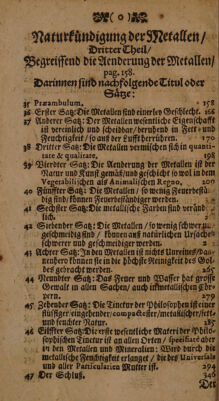 ( 0 )
Naturkündigung der Metallen/
Dritter Theil/
Begreiffend die Aenderung der Metallen/
pag. 158.
Darinnen sind nachfolgende Titul oder
Sätze:
35 Præambulum. 158
36 Erster Satz: Die Metallen sind einerley Geschlecht. 166
37 Anderer Satz: Der Metallen wesentliche Eigenschafft
ist vereinlich und scheidbar/ beruhend in Fett- und
Feuchtigkeit/ so aus der Lufft herrühren. 170
38 Dritter Satz: Die Metallen vermischen sich in quanti-
tate & qualitate, 198
39 Vierdter Satz: Die Aenderung der Metallen ist der
Natur und Kunst gemäß/und geschicht so wol in dem
Vegetabilischen als Animalischen Regno, 200
40 Fünffter Satz: Die Metallen / so wenig Feuerbestä-
dig sind/können Feuerbeständiger werden.
41 Sechster Satz: Die metallische Farben sind verän-
lich.
42 Siebender Satz: Die Metallen / so wenig schwer,
geschmeidig sind / können aus natürlichen Ursachen
schwerer und geschmeidiger werden
43 Achter Satz: In den Metallen ist nichts Unreines/
nenhero können sie in die höchste Reinigkeit des Gol-
des gebracht werden. 265
44 Neundter Satz: Das Feuer und Wasser hat grosse
Gewalt in allen Sachen/ auch im metallischen Cör-
pern. 279
45 Zehender Satz: Die Tinctur der Philosophen ist einer
flüssiger/eingehender/compactester/metallischer/fett-
und feuchter Natur. 287
46 Eilffter Satz: Die erste wesentliche Materi der Philo-
sophischen Tinctur ist an allen Orten/ specificè aber
in den Metallen und Mineralien: Wird durch die
metallische Feuchtigkeit erlanget / die des Universals
und aller Particularien Mutter ist. 294
47 Der Schluß. 340
Der